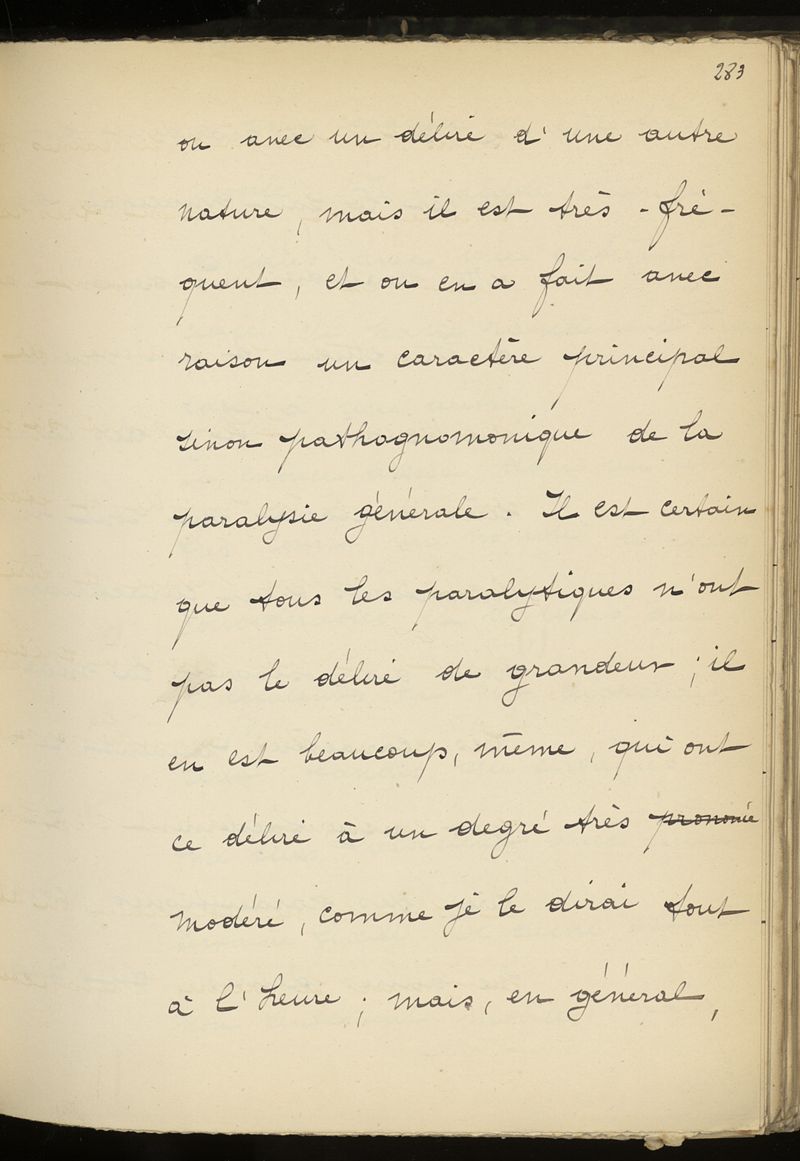 283
ou avec un délire d'une autre
nature, mais il est très-fré-
quent, et on en a fait avec
raison un caractère principal
sinon pathognomonique de la
paralysie générale. Il est certain
que tous les paralytiques n'ont
pas le délire de grandeur ; il
en est beaucoup, même, qui ont
ce délire à un degré très prononcé
modéré, comme je le dirai tout
à l'heure ; mais, en général,